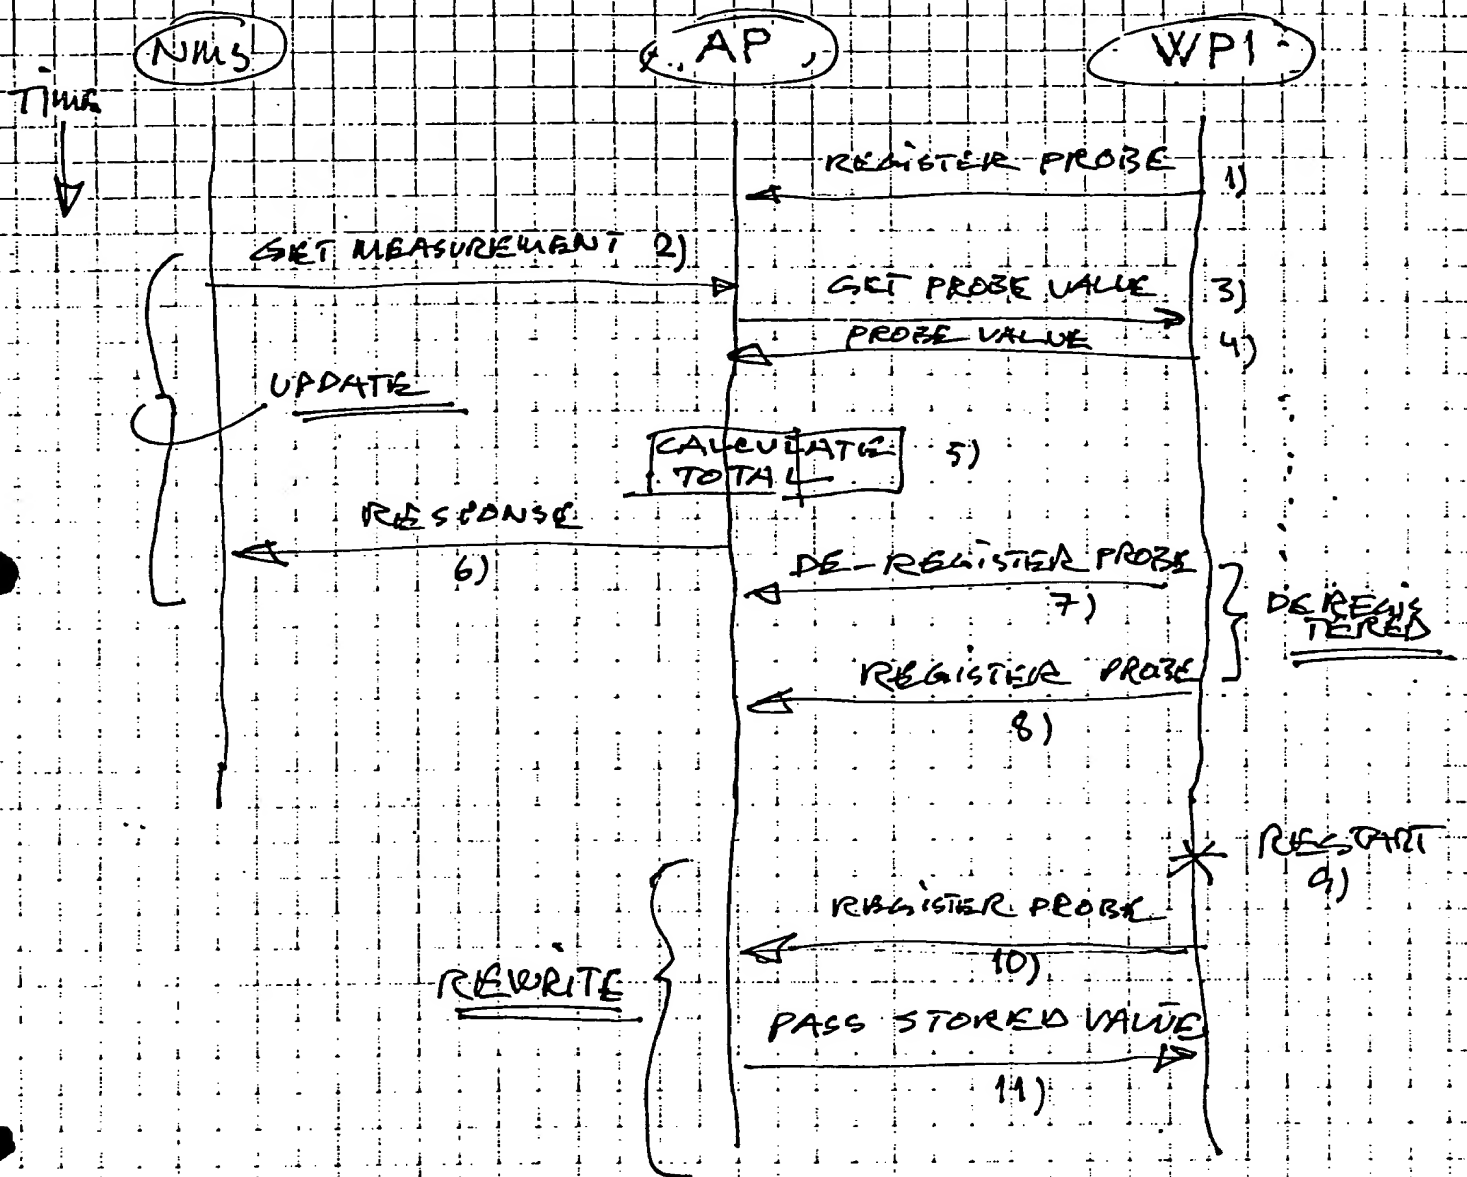 NMS
AP
WP1
Time
REGISTER PROBE
1)
GET MEASUREMENT 2)
GET PROBE VALUE 3)
PROBE VALUE 4)
UPDATE
CALCULATE 5)
TOTAL
RESPONSE
6)
DE-REGISTER PROBE
7)
DEREGIS
TERED
REGISTER PROBE
8)
RESTART
9)
REGISTER PROBE
10)
REWRITE
PASS STORED VALUE
11)